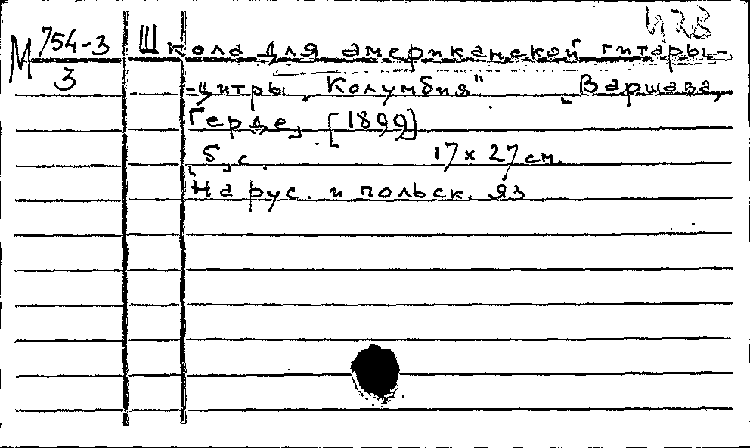 М 754-3
3
Школа для американской гитары-
-цитры „Колумбия". Варшава,
Герде, [1899]
5, с. 17 x 27 см.
На рус. и польск. яз